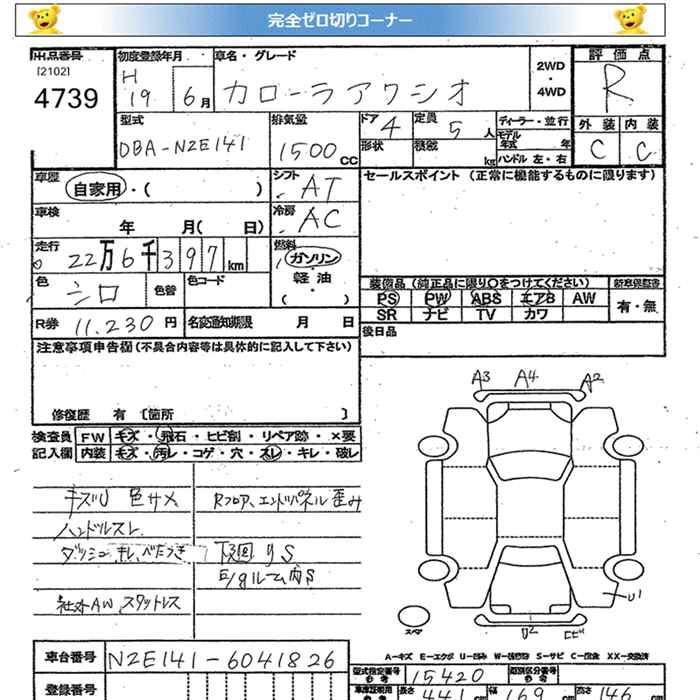 完全ゼロ切りコーナー
出品番号 初度登録年月 車名・グレード 2WD・4WD 評価点
[2102]
4739 H19 6月 カローラアクシオ R
型式 排気量 ドア 定員 ディーラー・並行 外装 内装
DBA-NZE141 1500CC 4 5人 モデル年式 年 C C
形状 積載 kg ハンドル 左・右
車歴 自家用・( ) シフト AT セールスポイント (正常に機能するものに限ります)
車検 年 月( 日) 冷房 AC
走行 22万6千397km 燃料 ガソリン・軽油・( )
色 シロ 色替 色コード
装備品 (純正品に限り○をつけてください) 新車保証書
PS PW ABS エアB AW 有・無
SR ナビ TV カワ
R券 11.230円 名変通知期限 月 日 後日品
注意事項申告欄 (不具合内容等は具体的に記入して下さい)
修復歴 有 [箇所 ]
A3 A4 A2
検査員 FW キズ・飛石・ヒビ割・リペア跡・×要
記入欄 内装 キズ・汚レ・コゲ・穴・スレ・キレ・破レ
キズU 色サメ Rフロア、エンドパネル歪み
ハンドルスレ
ダッシュ、キレ、べたつき 下廻りS
E/gルーム内S
社外AW、スタットレス
U1
スペア U2
A-キズ E-エクボ U-凹み W-補修跡 S-サビ C-腐食 XX-交換済
車台番号 NZE141-6041826 型式指定番号 15420 類別区分番号
登録番号 長さ 441cm 幅 169cm 高さ 146cm